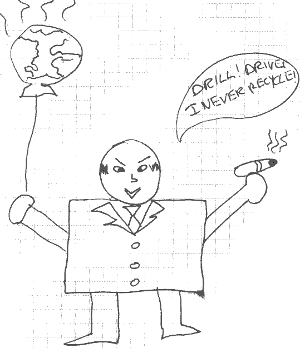 DRILL! DRIVE!
I NEVER RECYCLE!